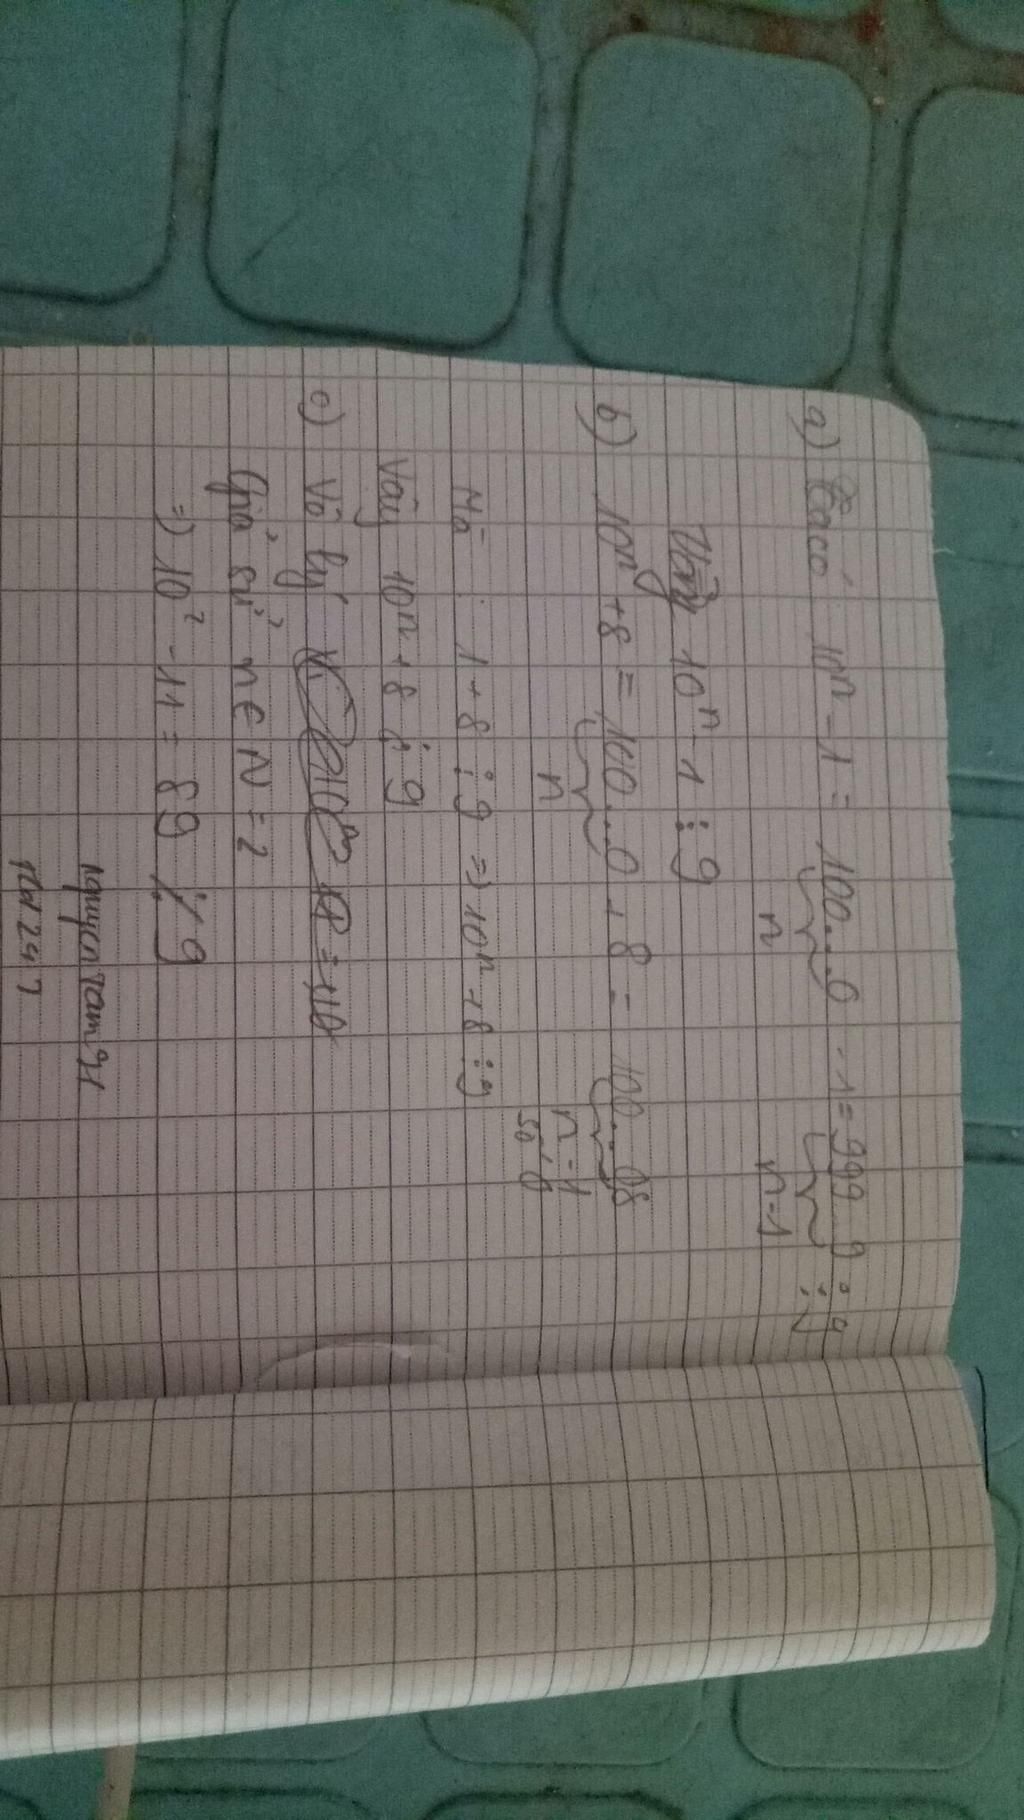 a) Ta có 10ⁿ - 1 = 100...0 - 1 = 999...9 ⋮ 9
n n-1
Vậy 10ⁿ - 1 ⋮ 9
b) 10ⁿ + 8 = 100...0 + 8 = 100...08
n n-1
số 0
Mà 1 + 8 ⋮ 9 => 10ⁿ + 8 ⋮ 9
Vậy 10ⁿ + 8 ⋮ 9
c) Vô lý
Giả sử n ∈ N = 2
=> 10² - 11 = 89 ⋮̸ 9
nguyentam91
nw247